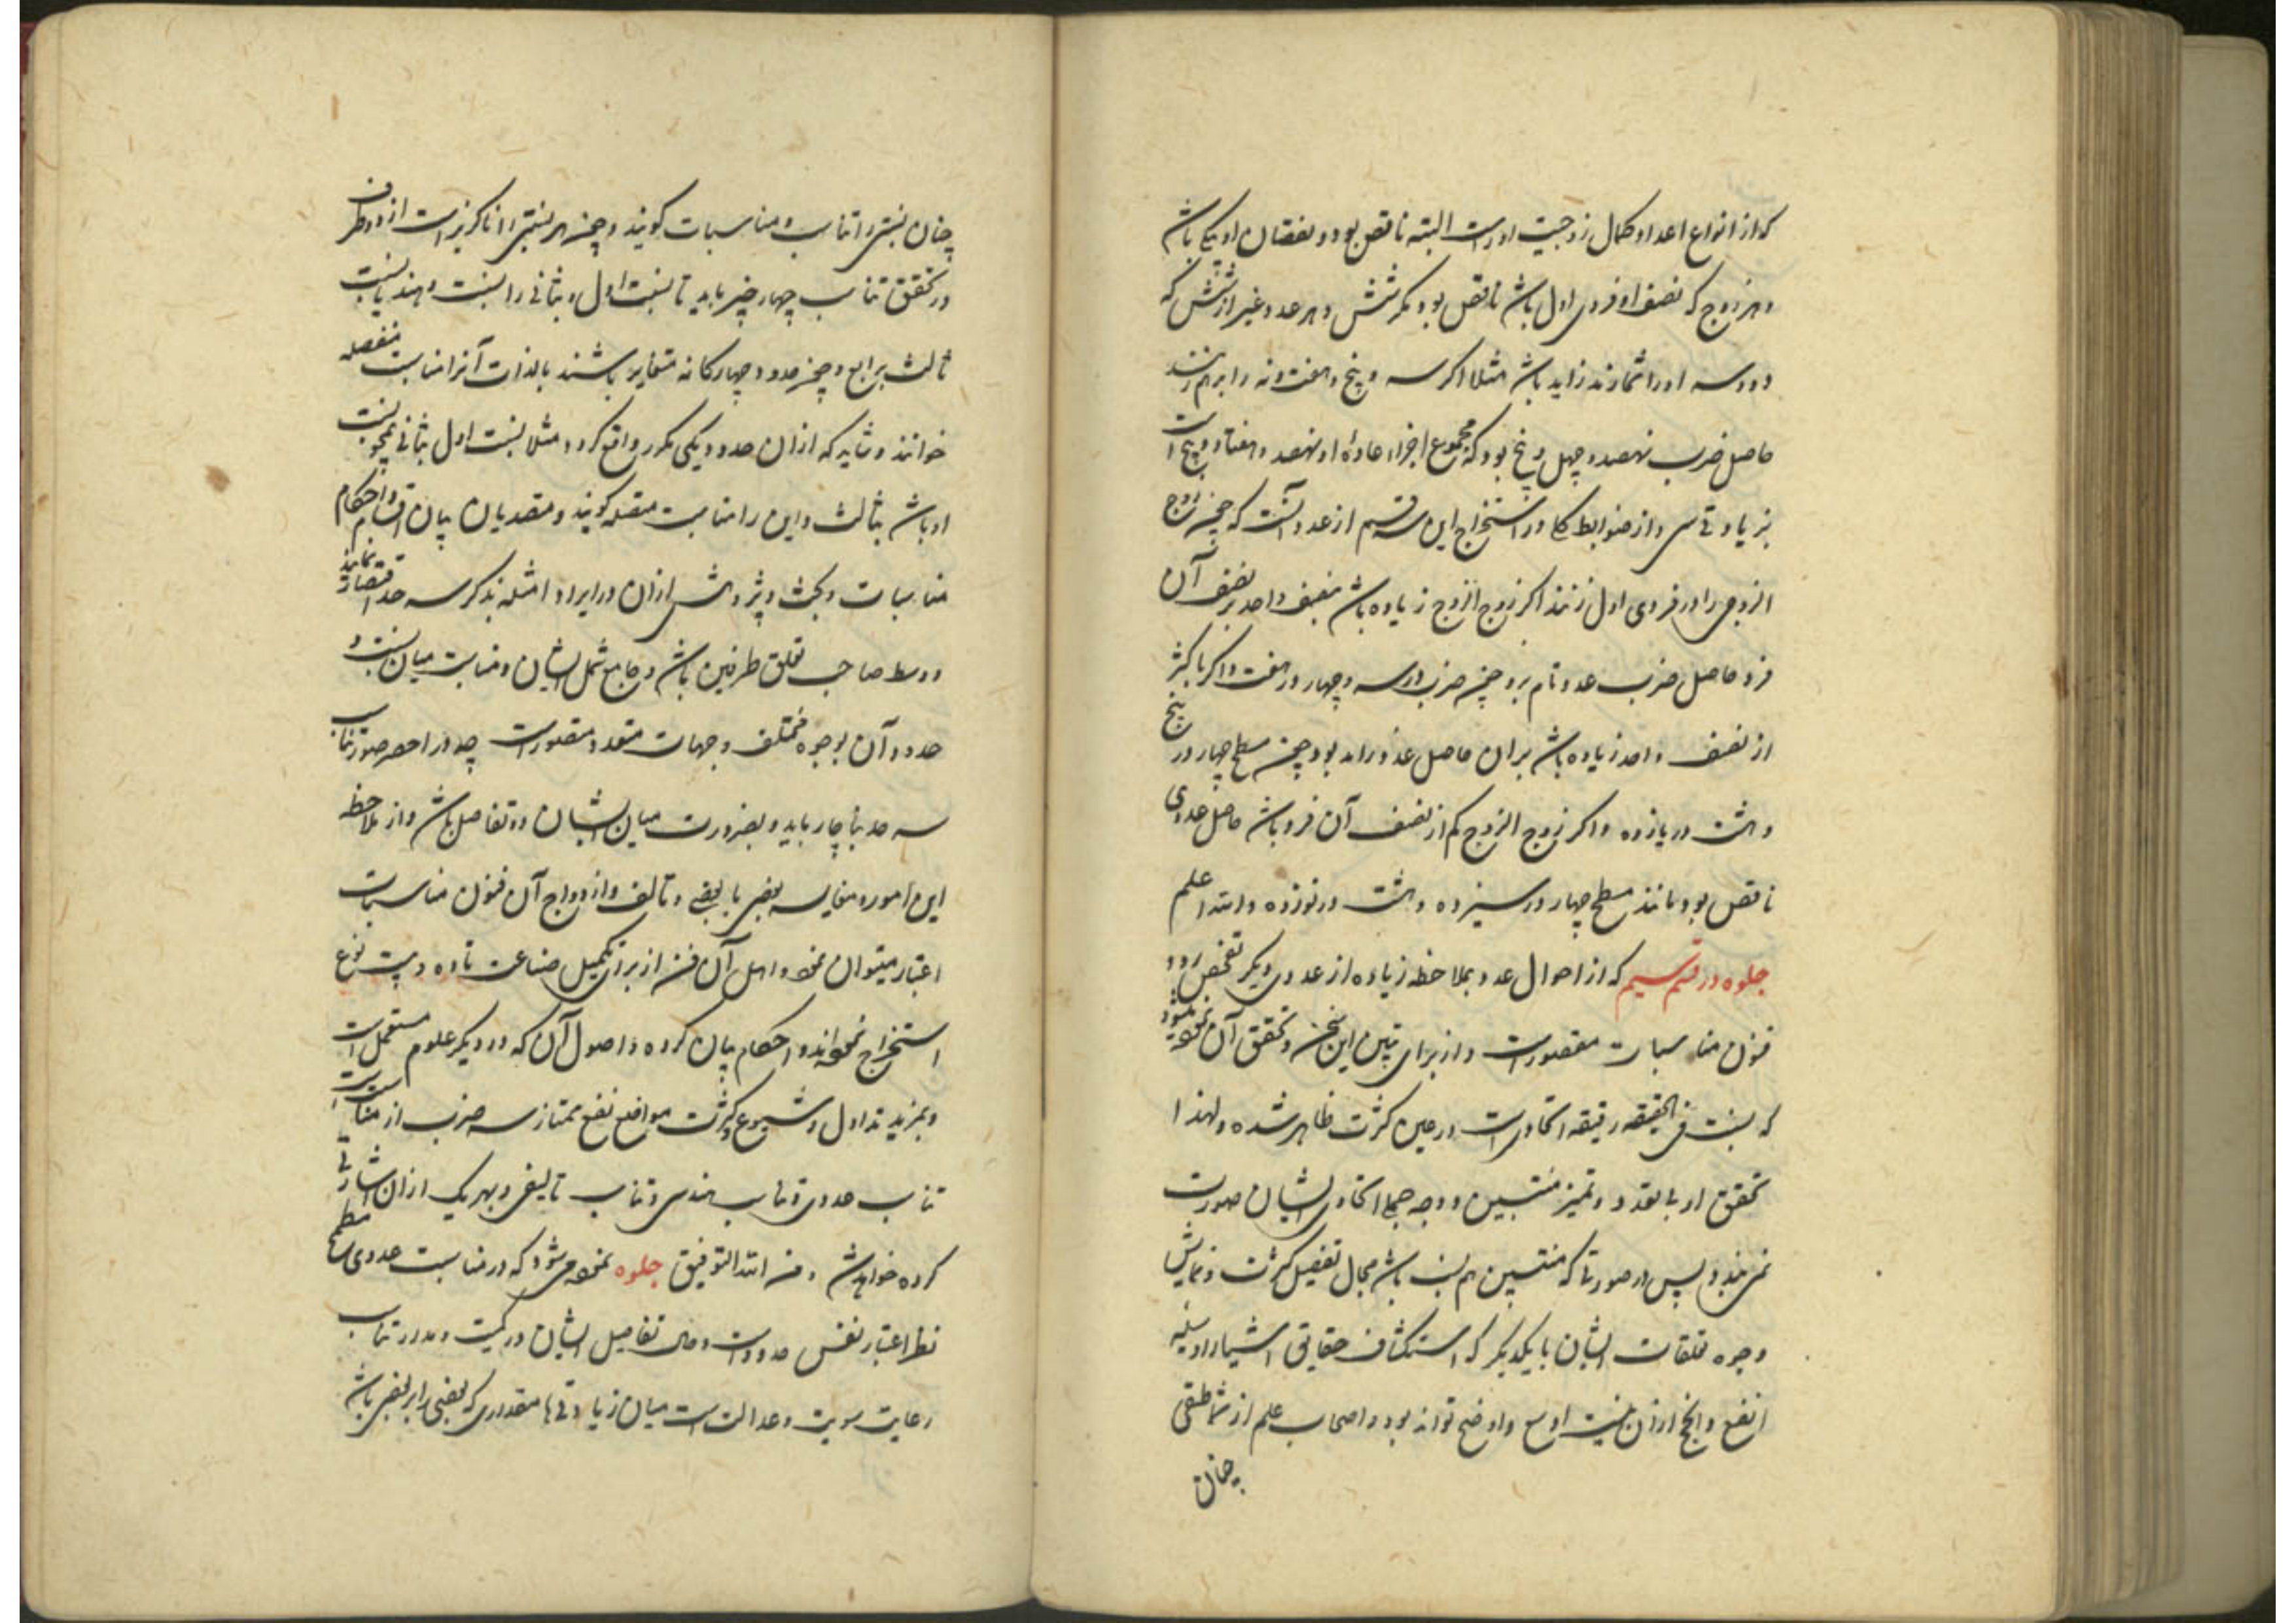 که از انواع اعداد و کمال زوجیت او راست البته ناقص بود و نقصان او بیکی باشد
و هر زوج که نصف او فردی اول باشد ناقص بود مگر شش و هر عدد غیر از شش که
دو و سه او را شمارند زاید باشد مثلا اگر سه و پنج و هفت و نه را بر هم زنند
حاصل ضرب نهصد و چهل و پنج بود که مجموع اجزاء عاده او نهصد و هفتاد و پنج است
بزیادتی سی و از ضوابط کلی در استخراج این سه قسم از عدد آنست که چون زوج
الزوجی را در فردی اول زنند اگر زوج الزوج زیاده باشد بنصف واحد بر نصف آن
فرد حاصل ضرب عدد تام بود چون ضرب دو در سه و چهار در هفت و اگر باکثر
از نصف واحد زیاده باشد بر آن حاصل عدد زاید بود چون مسطح چهار در پنج
و هشت در یازده و اگر زوج الزوج کم از نصف آن فرد باشد حاصل عددی
ناقص بود مانند مسطح چهار در سیزده و هشت در نوزده و الله اعلم
جلوه در قسم سیم که از احوال عدد بملاحظه زیاده از عددی دیگر تفحص رود
فنون مناسبات مقصور است و از برای تبیین این سخن و تحقق آن نموده میشود
که نسبت فی الحقیقه رقیقه اتحادیست در عین کثرت ظاهر شده و لهذا
تحقق او بی تعدد و تمیز منتسبین و وجه جملی اتحادی ایشان صورت
نمی بندد پس در صورتی که منتسبین هم نسب باشد مجال تفصیل کثرت و نمایش
وجوه تعلقات ایشان با یکدیگر که استکشاف حقایق اشیا را وسیله
انفع و انجح از آن نیست اوسع و اوضح تواند بود و اصحاب علم ارثماطیقی
چنان
چنان نسبتی را تناسب و مناسبات گویند و چون هر نسبتی را ناگزیر است از دو طرف
در تحقق تناسب چهار چیز باید تا نسبت اول و ثانی را نسبت دهند بنسبت
ثالث برابع و چون حدود چهارگانه متغایر باشند بالذات آنرا مناسبت منفصله
خوانند و شاید که از آن حدود یکی مکرر واقع گردد مثلا نسبت اول بثانی همچو نسبت
او باشد بثالث و این را مناسبت متصله گویند و متصدیان بیان اقسام و احکام
مناسبات و بحث و پژوهش از آن در ایراد امثله بذکر سه حد اقتصار نمایند
و وسط صاحب تعلق طرفین باشد و جامع شمل ایشان و مناسبت میان نسبت و
حدود آن بوجوه مختلف و جهات متعدد متصورست چه در احصر صور تناسب
سه حد بناچار باید و بضرورت میان ایشان دو تفاضل باشد و از ملاحظه
این امور و مقایسه بعضی با بعضی و تالف و ازدواج آن فنون مناسبات
اعتبار میتوان نمود و اهل آن فن از برای تکمیل صناعت تا ده و بیست نوع
استخراج نموده اند و احکام بیان کرده و اصول آن که در دیگر علوم مستعمل است
و بمزید تداول و شیوع و کثرت مواقع نفع ممتاز سه ضرب از مناسبت است
تناسب عددی و تناسب هندسی و تناسب تالیفی و بهر یک از آن اشارتی
کرده خواهد شد و من الله التوفیق جلوه نموده می شود که در مناسبت عددی مطمح
نظر اعتبار نفس حدودست و حال تفاضل ایشان در کمیت و مدار تناسب
رعایت سویت و عدالت است میان زیادتی ها مقداری که بعضی را بر بعضی باشد